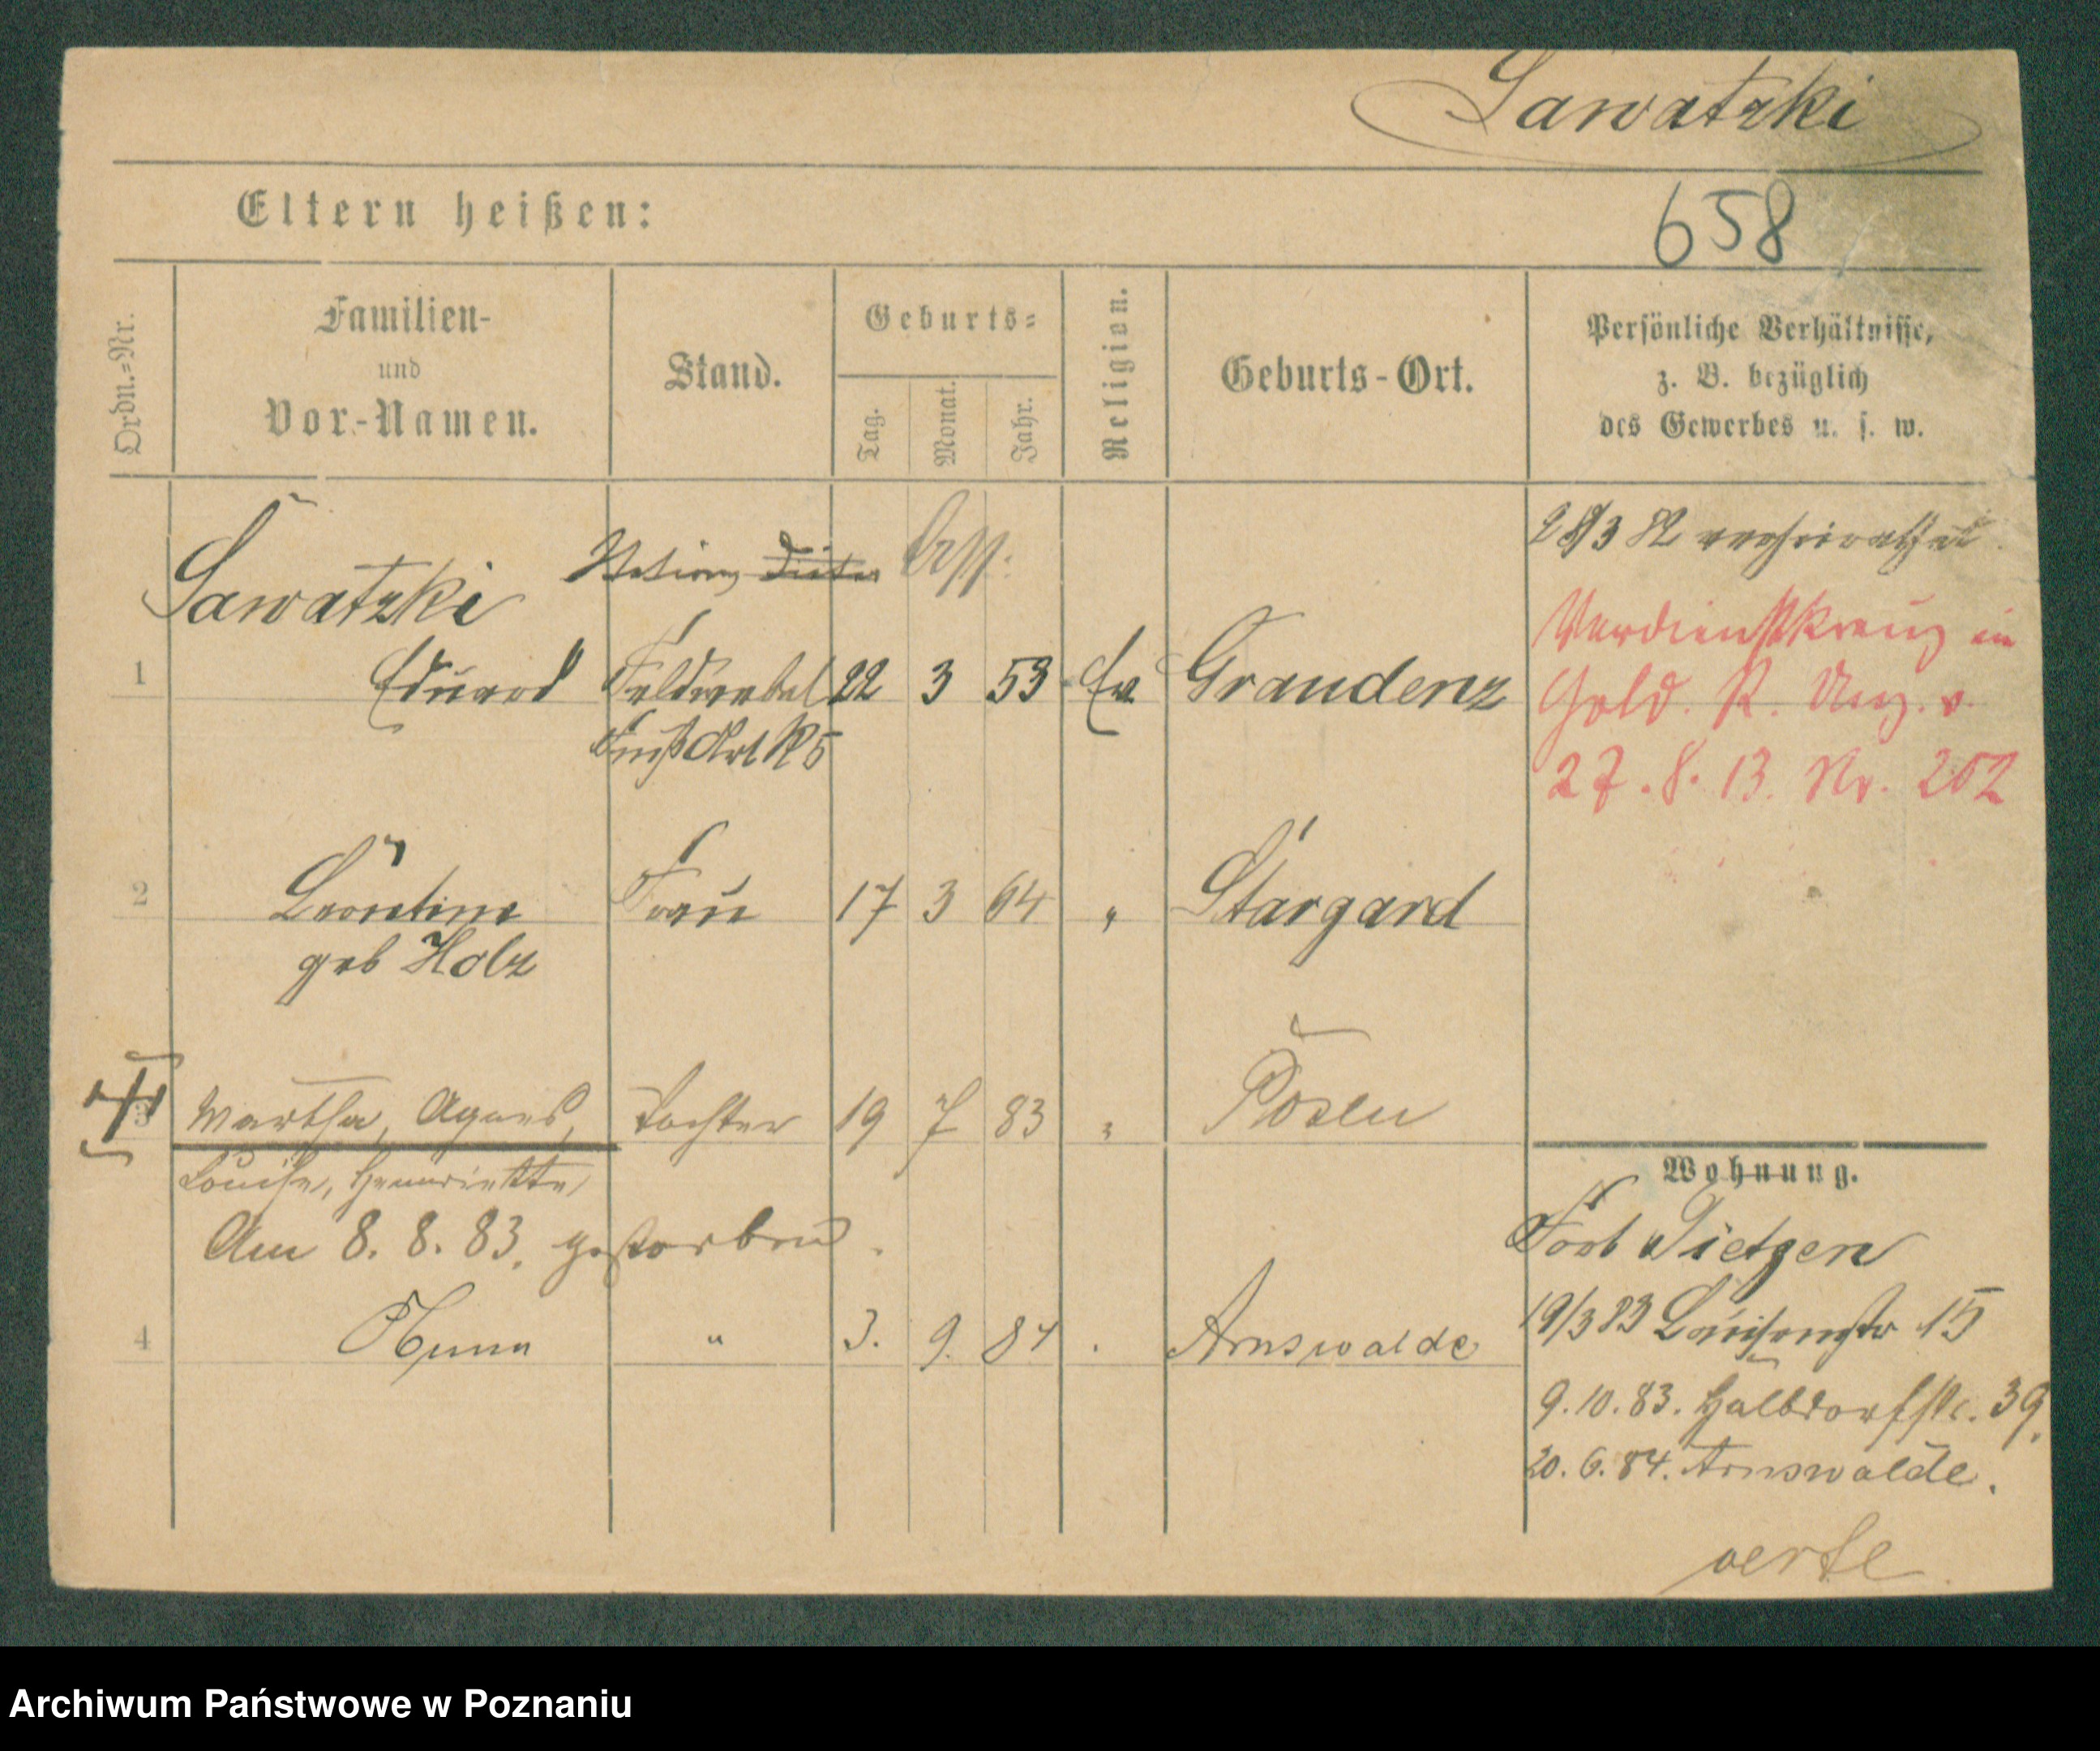 Sawatzki
658
Eltern heißen:
Ordn.=Nr.
Familien-
und
Vor-Namen.
Stand.
Geburts=
Tag.
Monat.
Jahr.
Religion.
Geburts-Ort.
Persönliche Verhältnisse,
z. B. bezüglich
des Gewerbes u. s. w.
Sawatzki
Stations
1 Eduard Feldwebel 22 3 53 Ev Graudenz
Fuß Art R 5
28/3 82 verheirathet
Verdienstkreuz in
Gold. R. Anz. v.
27. 8. 13. Nr. 202
2 Leontine Frau 17 3 64 " Stargard
geb Holz
3 Martha, Agnes, Tochter 19 7 83 " Posen
Louise, Henriette
Am 8. 8. 83. gestorben.
4 Anna " 3. 9. 84 . Arnswalde
Wohnung.
Fort Tietzen
19/3 83 Louisenstr 15
9.10.83. Halbdorfstr. 39.
20. 6. 84. Arnswalde.
verte
Archiwum Państwowe w Poznaniu